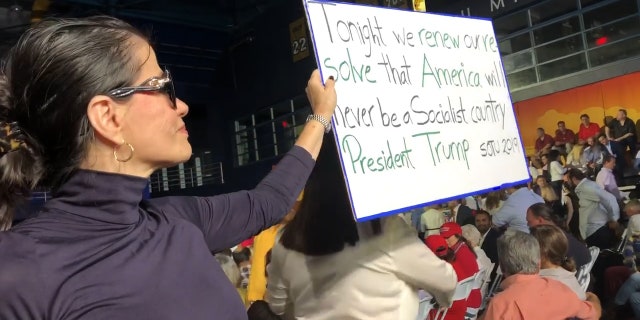 22
Tonight we renew our re
solve that America will
never be a Socialist country
President Trump SOTU 2019